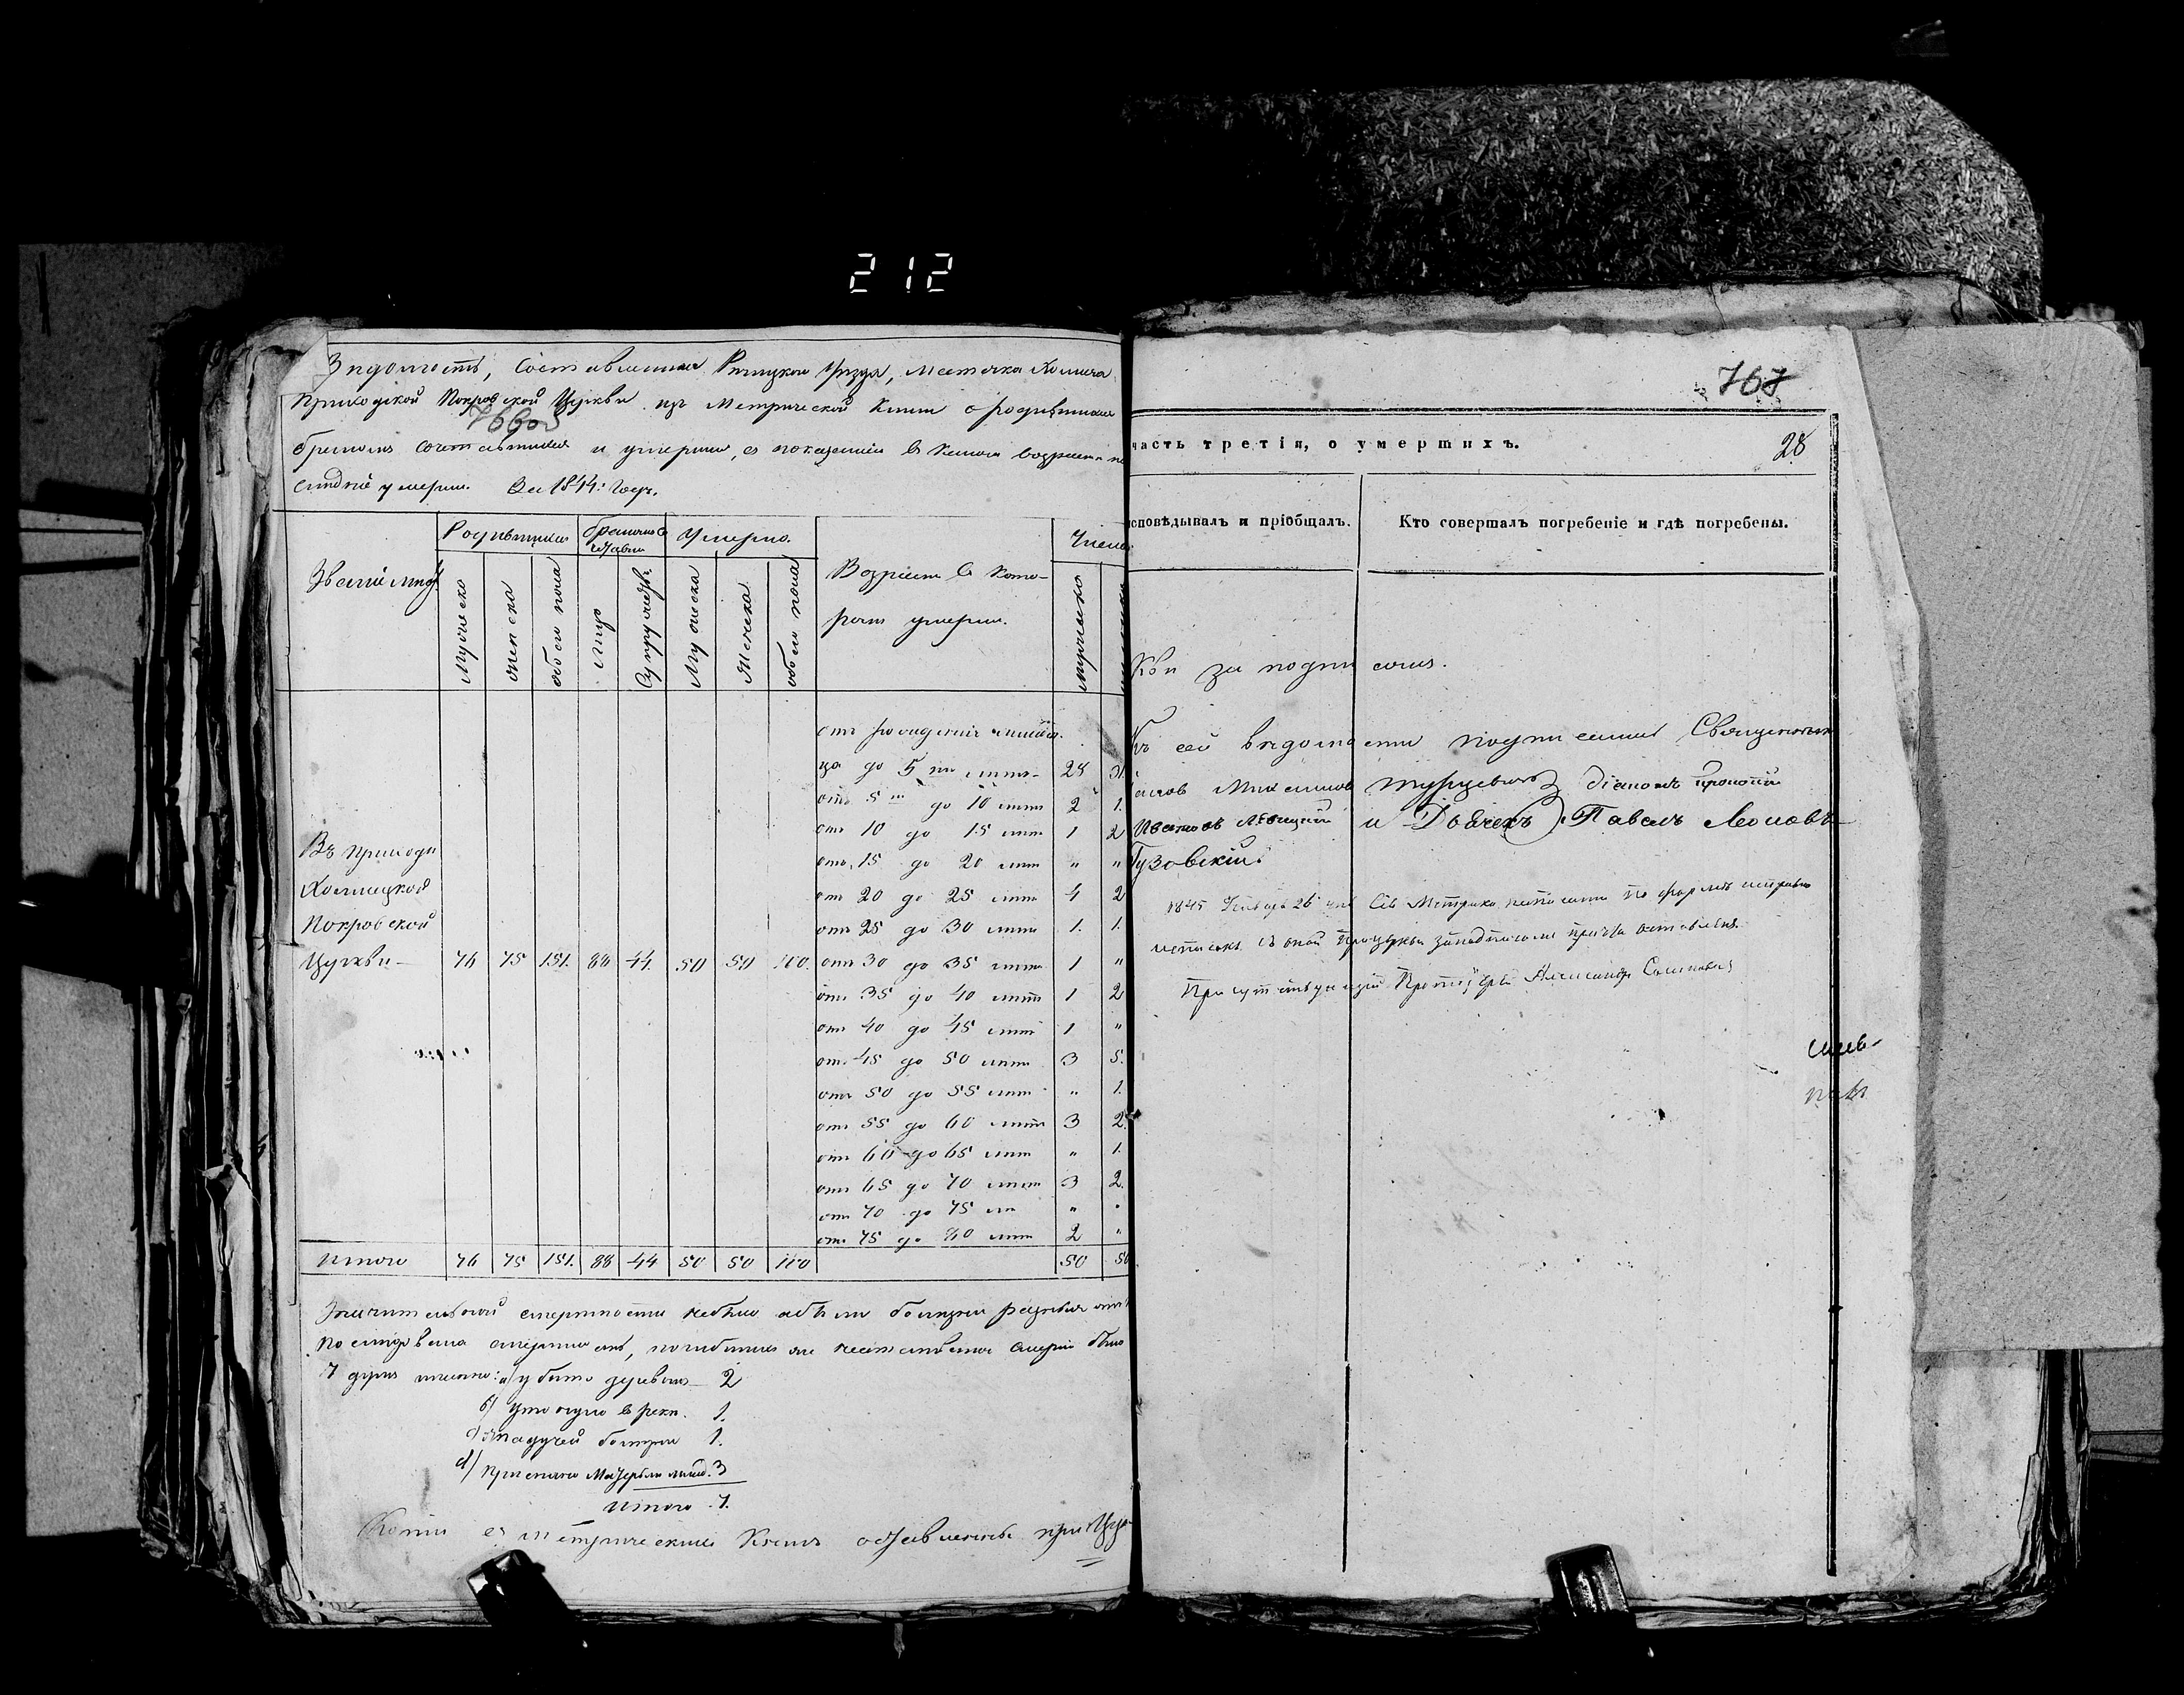 212
Вѣдомость, составленная Рѣчицкого уѣзда, местечка Холмеча
Приходской Покровской Церкви изъ Метрической Книги о родившихся
766об
бракомъ сочетавшихся и умершихъ, съ показаніемъ въ какомъ возрастѣ по
слѣдніе умерли. За 1844: годъ.
Званіе мѣстъ
Родившихся
бракомъ сочетавш
Умерло.
Возрастъ въ кото-
ромъ умерли.
Число
Мужеска
женска
обоего пола
лицъ
Супружествъ
Мужеска
Женска
обоего пола
мужеска
отъ рожденія
до 5 ти лѣтъ 28 31
отъ 5 ти до 10 лѣтъ 2 1.
отъ 10 до 15 лѣтъ 1 2
отъ 15 до 20 лѣтъ " "
отъ 20 до 25 лѣтъ 4 2
отъ 25 до 30 лѣтъ 1. 1.
Въ приходѣ
Холмецкой
Покровской
Церкви 76 75 151. 88 44. 50 50 100.
отъ 30 до 35 лѣтъ 1 "
отъ 35 до 40 лѣтъ 1 2
отъ 40 до 45 лѣтъ 1 "
отъ 45 до 50 лѣтъ 3 5.
отъ 50 до 55 лѣтъ " 1.
отъ 55 до 60 лѣтъ 3 2
отъ 60 до 65 лѣтъ " 1.
отъ 65 до 70 лѣтъ 3 2.
отъ 70 до 75 лѣ " "
отъ 75 до 80 лѣтъ 2 "
Итого 76 75 151. 88 44 50 50 100 50 50
Значительной смертности небыло
послѣдовала смертность, смерти было
7 душъ именно: а) убито деревомъ 2
б) утонуло в рекѣ. 1.
падучей болезни 1.
d) приспано Матерьми 3
Итого 7.
Копіи съ метрическихъ Книгъ оставлены при Цер
767
часть третія, о умершихъ. 28
сповѣдывалъ и пріобщалъ.
Кто совершалъ погребеніе и гдѣ погребены.
кви за подписомъ.
Къ сей вѣдомости подписались Священникъ
діаконъ Прокопій
Ивановъ и Дьячекъ Павелъ Леоновъ
Гузовскій.
1845 Января 26 дня Сія Метрика писана по формѣ исправно
съ оной при церкви за подписомъ причта оставленъ.
Присутствующій Протоіерей